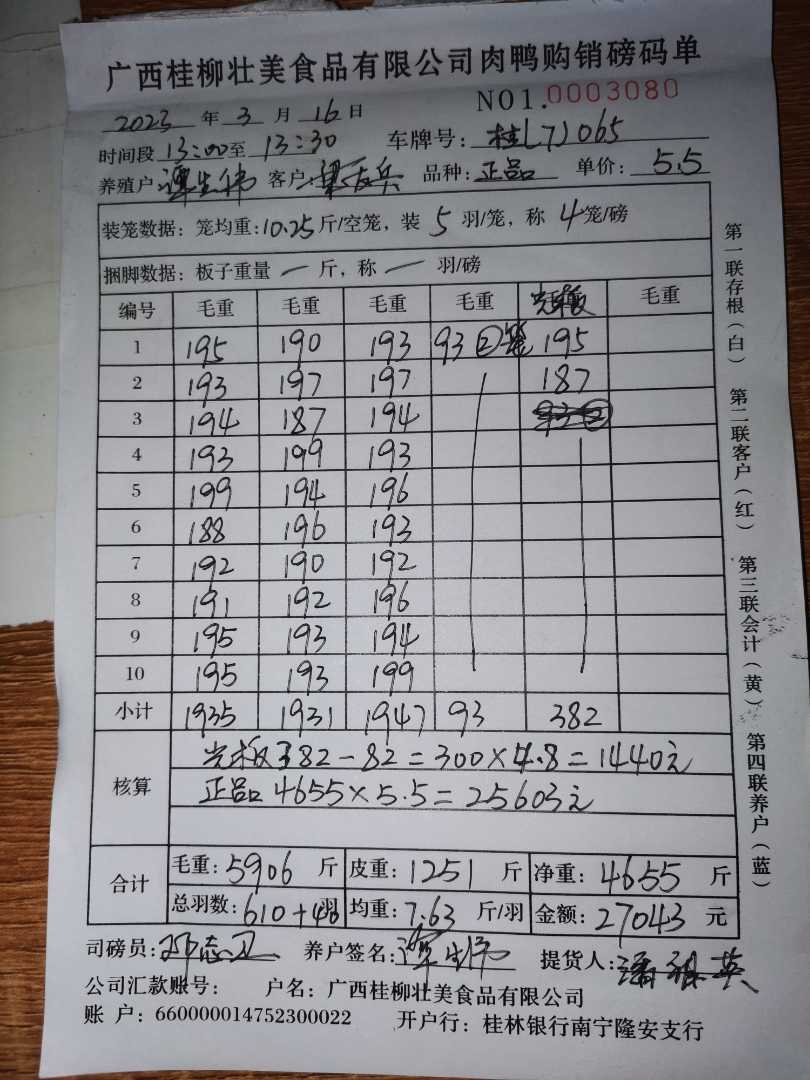 广西桂柳壮美食品有限公司肉鸭购销磅码单
NO1.0003080
2023 年 3 月 16 日
时间段 13:00 至 13:30 车牌号: 桂L7J065
养殖户: 谭生伟 客户: 品种: 正品 单价: 5.5
装笼数据: 笼均重: 10.25 斤/空笼, 装 5 羽/笼, 称 4 笼/磅
捆脚数据: 板子重量 一 斤, 称 一 羽/磅
编号 毛重 毛重 毛重 毛重 光板 毛重
1 195 190 193 93②笼 195
2 193 197 197 187
3 194 187 194
4 193 199 193
5 199 194 196
6 188 196 193
7 192 190 192
8 191 192 196
9 195 193 194
10 195 193 199
小计 1935 1931 1947 93 382
核算
光板382-82=300×4.8=1440元
正品4655×5.5=25603元
合计
毛重: 5906 斤 皮重: 1251 斤 净重: 4655 斤
总羽数: 610+ 羽 均重: 7.63 斤/羽 金额: 27043 元
司磅员: 邓志卫 养户签名: 谭生伟 提货人: 潘银英
公司汇款账号: 户名: 广西桂柳壮美食品有限公司
账 户: 660000014752300022 开户行: 桂林银行南宁隆安支行
第一联存根(白) 第二联客户(红) 第三联会计(黄) 第四联养户(蓝)